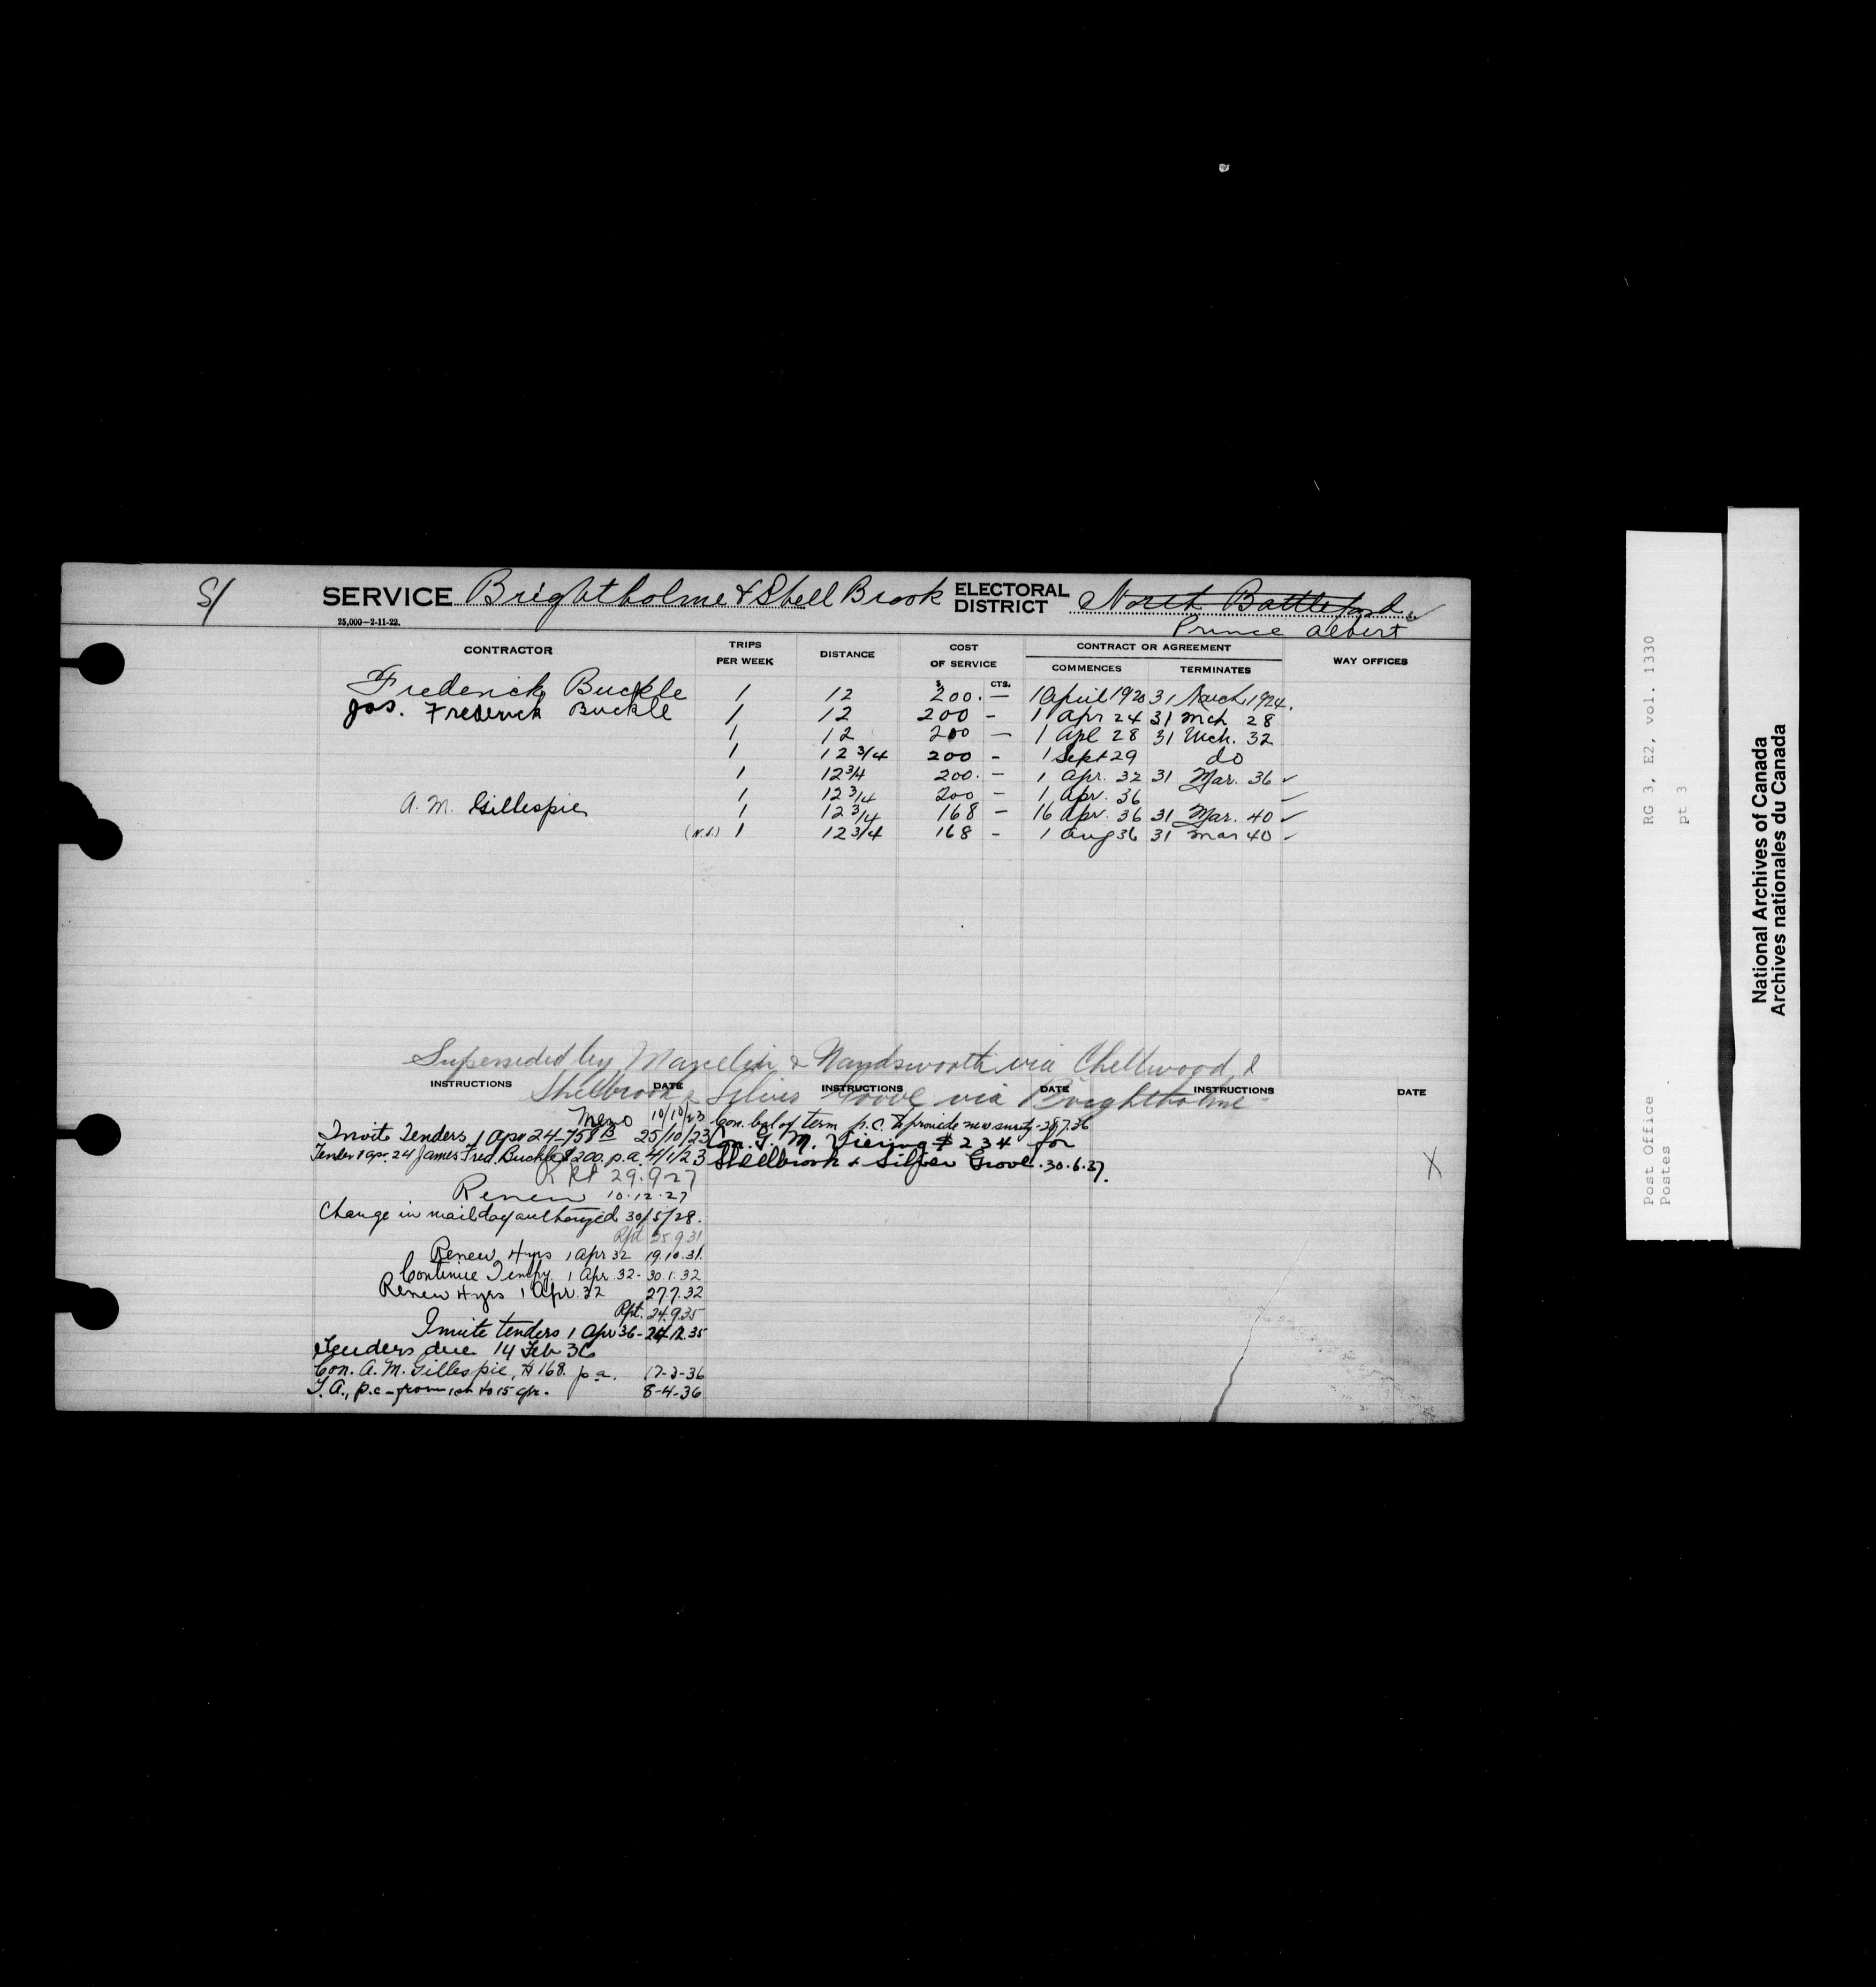 S/ SERVICE Brightholme & Shell Brook ELECTORAL DISTRICT North Battleford
25,000-2-11-22. Prince Albert
CONTRACTOR TRIPS PER WEEK DISTANCE COST OF SERVICE CONTRACT OR AGREEMENT WAY OFFICES
COMMENCES TERMINATES
$ CTS.
Frederick Buckle 1 12 200. — 1 April 1920 31 March 1924.
Jas. Frederick Buckle 1 12 200 - 1 Apr 24 31 Mch 28
1 12 200 — 1 Apl 28 31 Mch. 32
1 12 3/4 200 - 1 Sept 29 do
1 12 3/4 200. - 1 Apr. 32 31 Mar. 36 ✓
1 12 3/4 200 - 1 Apr. 36 ✓
A. M. Gillespie 1 12 3/4 168 - 16 Apr. 36 31 Mar. 40 ✓
(N.S.) 1 12 3/4 168 - 1 Aug 36 31 Mar 40 ✓
Superseded by Marcelin & Wandsworth via Chellwood &
Shellbrook & Silver Grove via Brightholme
INSTRUCTIONS DATE INSTRUCTIONS DATE INSTRUCTIONS DATE
Memo 10/10/23
Invite Tenders 1 Apr 24-758B 25/10/23
Tender 1 apr. 24 James Fred. Buckle $200. p.a. 4/1/23
Rpt 29.9.27
Renew 10.12.27
Change in mail day authorized 30/5/28.
Rpt 25.9.31
Renew 4 yrs 1 Apr 32 19.10.31.
Continue Tempy. 1 Apr. 32- 30.1.32
Renew 4 yrs 1 Apr. 32 27.7.32
Rpt. 24.9.35
Invite tenders 1 Apr 36 - 24.12.35
Tenders due 14 Feb 36
Con. A. M. Gillespie, $168. p.a. 17-3-36
T. A., p.c - from 1st to 15 Apr. 8-4-36
Con. bal of term p.c. to provide new surety - 28.7.36
Con. T. M. Viering $234 for
Shellbrook & Silver Grove. 30.6.37.
X
Post Office
Postes
RG 3, E2, vol. 1330
pt 3
National Archives of Canada
Archives nationales du Canada